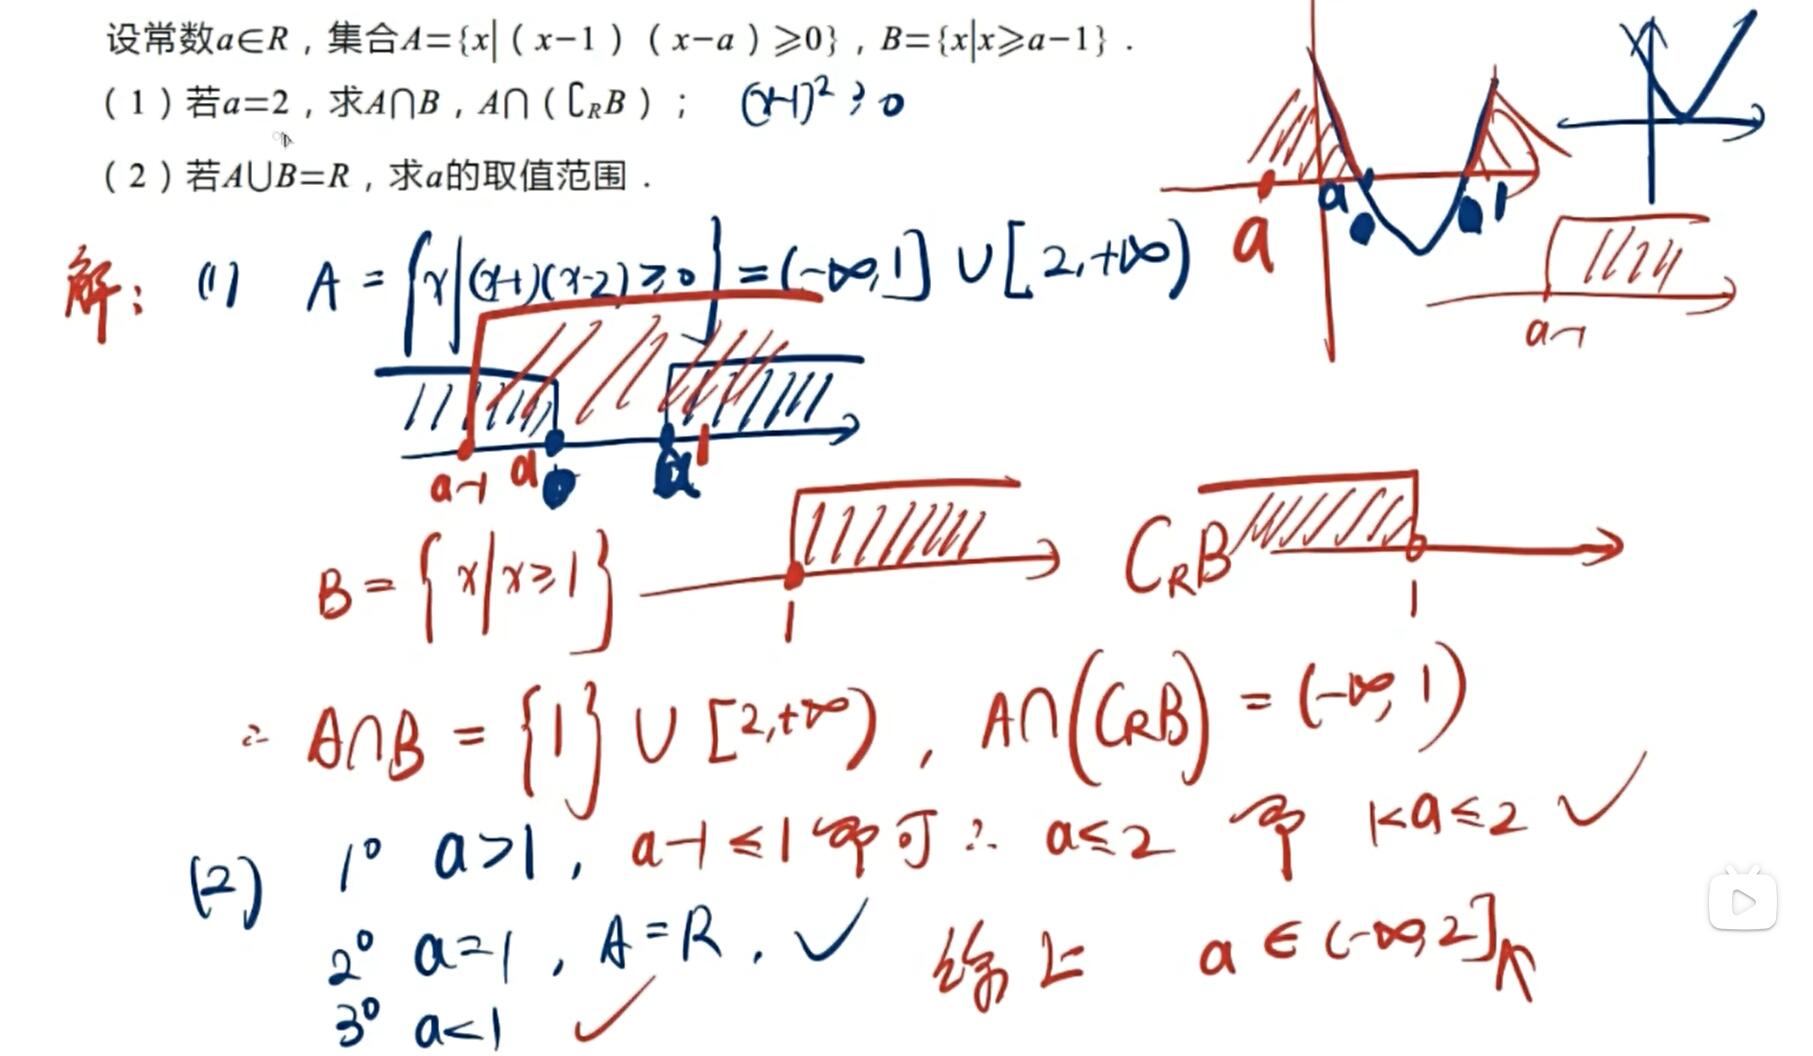 设常数a∈R，集合A={x|（x−1）（x−a）⩾0}，B={x|x⩾a−1}．
（1）若a=2，求A∩B，A∩（∁RB）； (x-1)² ≥ 0
（2）若A∪B=R，求a的取值范围．
a a 1
a-1
解: (1) A = {x|(x-1)(x-2)≥0} = (-∞,1] ∪ [2,+∞)
a-1 a a 1
B = {x|x≥1} 1 CRB 1
∴ A∩B = {1} ∪ [2,+∞) , A∩(CRB) = (-∞,1)
(2) 1° a>1 , a-1≤1 即可 ∴ a≤2 即 1<a≤2 ✓
2° a=1 , A=R . ✓ 综上 a∈(-∞,2]
3° a<1 ✓